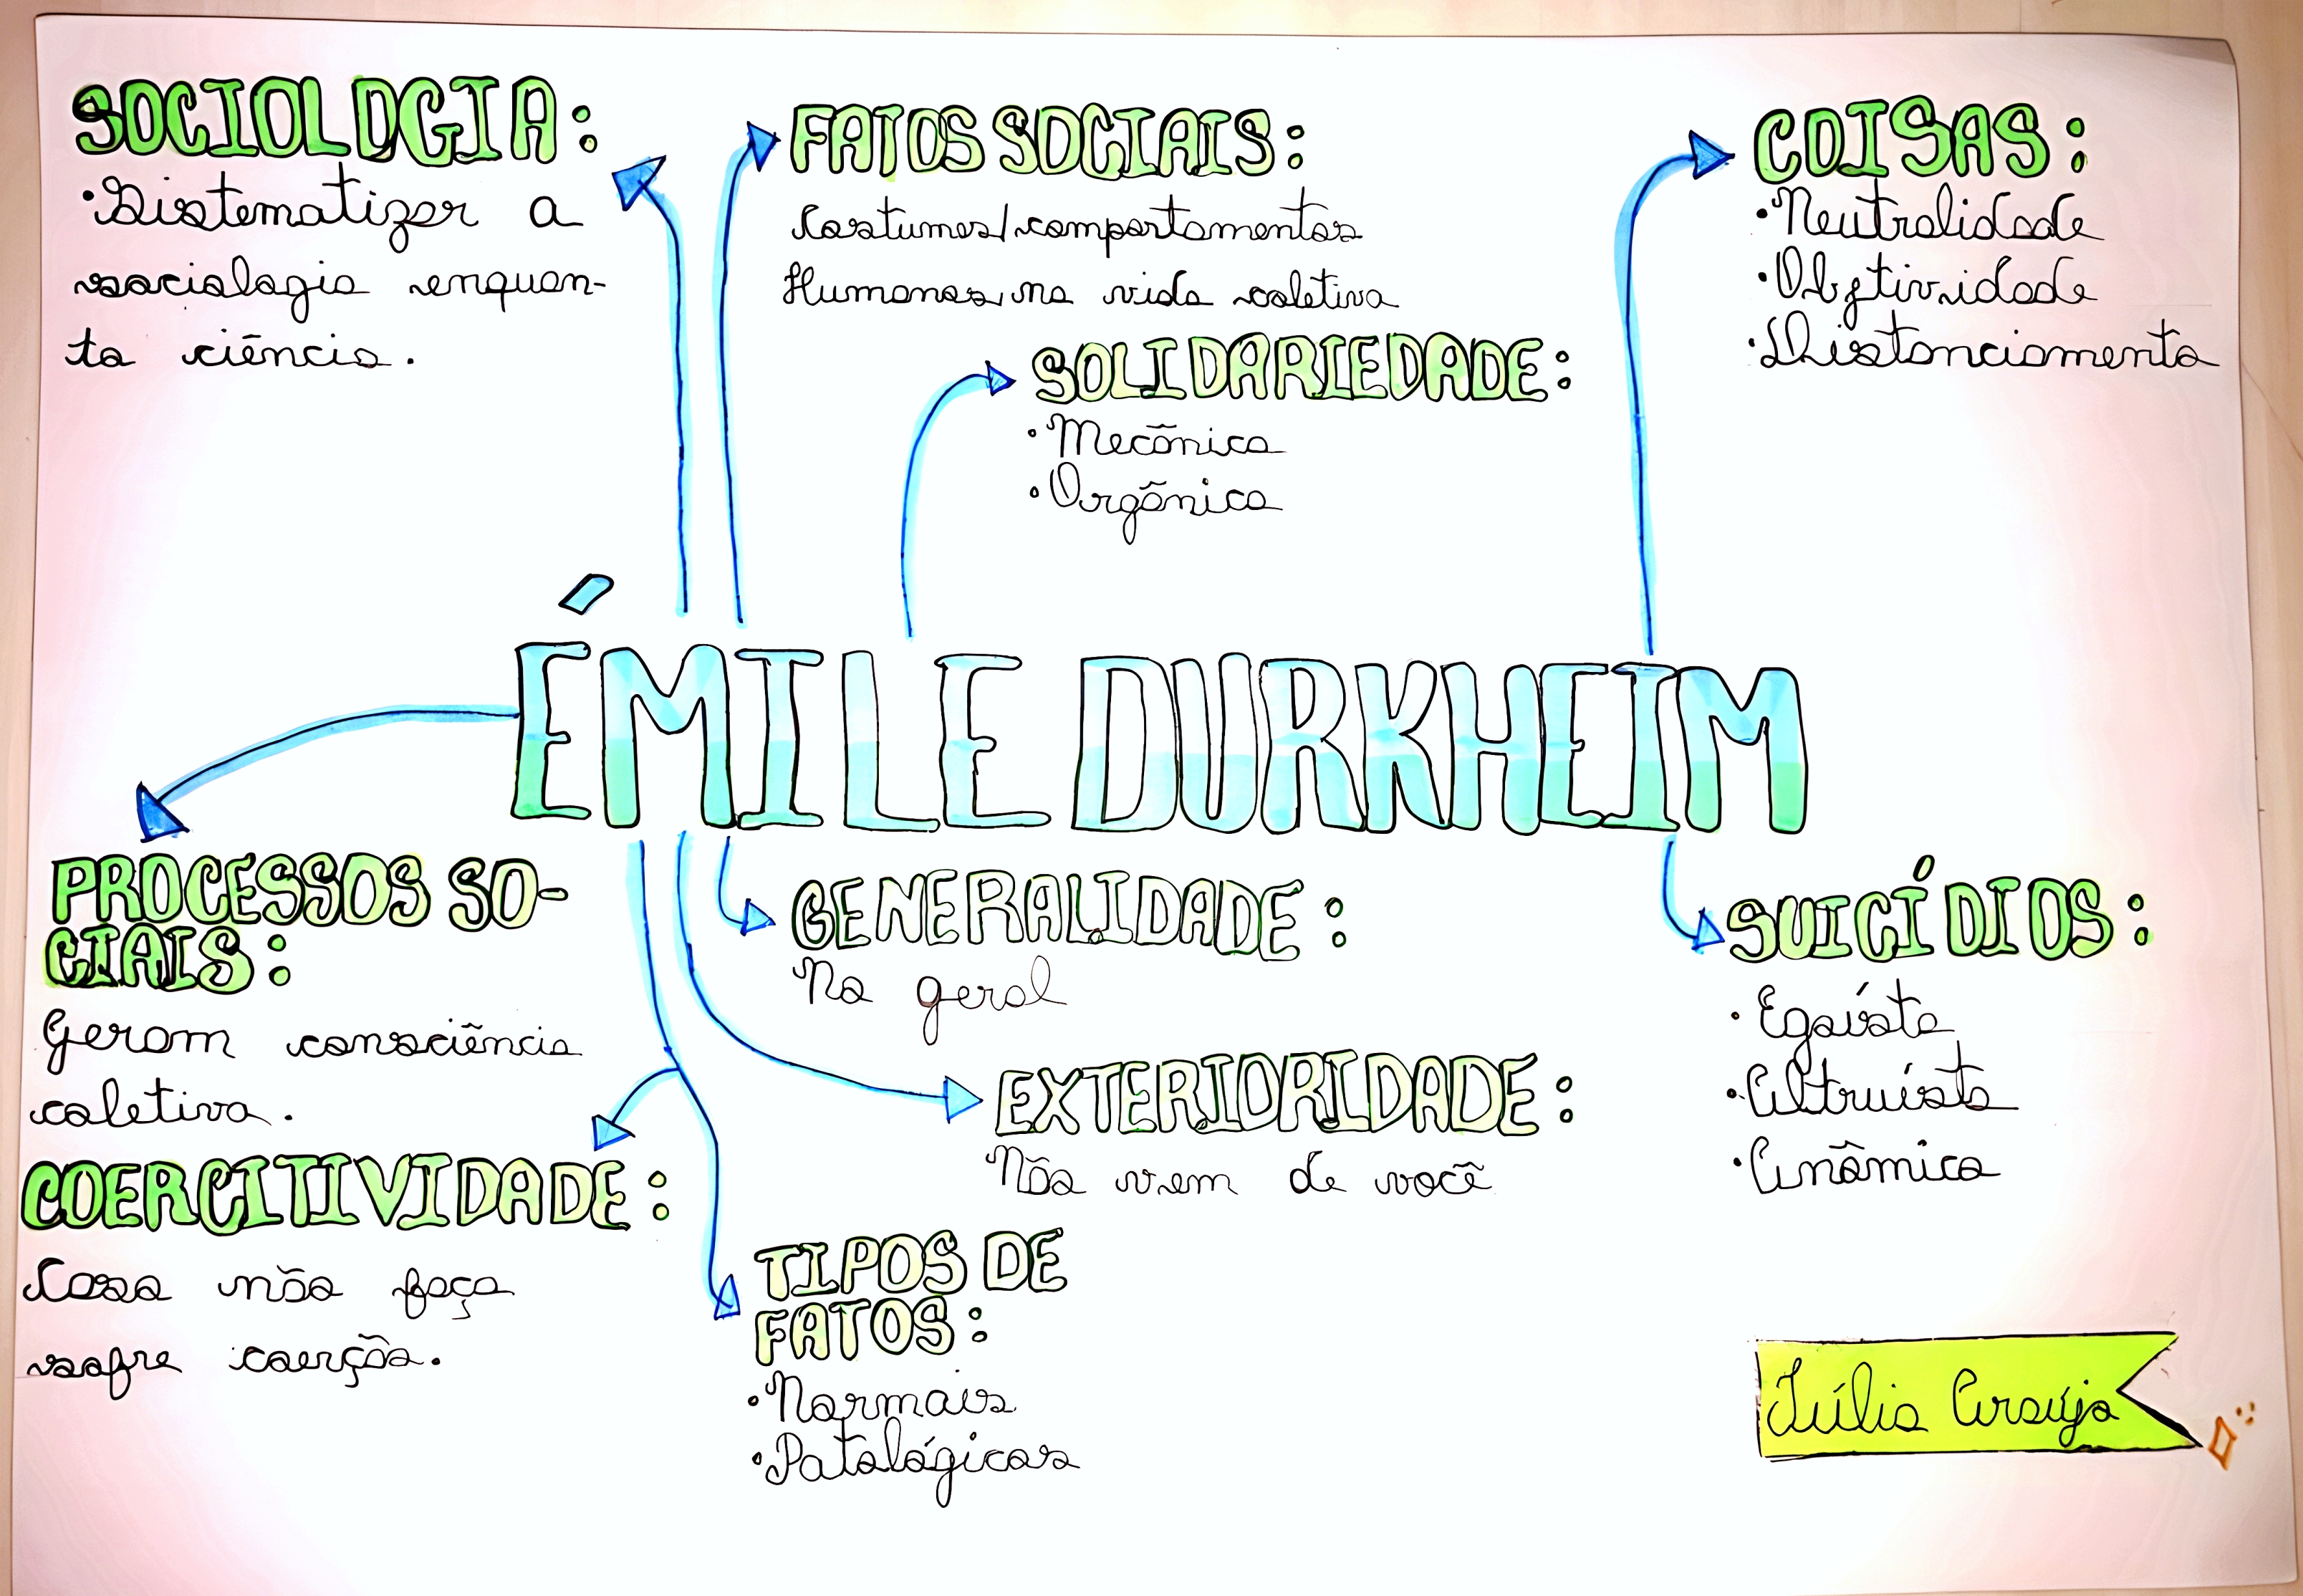 SOCIOLOGIA:
• Sistematizar a
sociologia enquan-
to ciência.
FATOS SOCIAIS:
Costumes/comportamentos
Humanos, na vida coletiva
SOLIDARIEDADE:
• Mecânica
• Orgânica
COISAS:
• Neutralidade
• Objtividade
• Distanciamento
ÉMILE DURKHEIM
PROCESSOS SO-
CIAIS:
Geram consciência
coletiva.
COERCITIVIDADE:
Caso não faça
sofre coerção.
GENERALIDADE:
No geral
EXTERIORIDADE:
Não vem de você
TIPOS DE
FATOS:
• Normais
• Patológicos
SUICÍDIOS:
• Egoísta
• Altruísta
• Anômico
Júlia Araújo